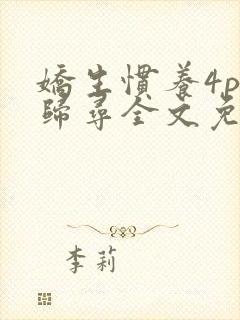 嬌生慣養4p
歸尋全文免
李莉